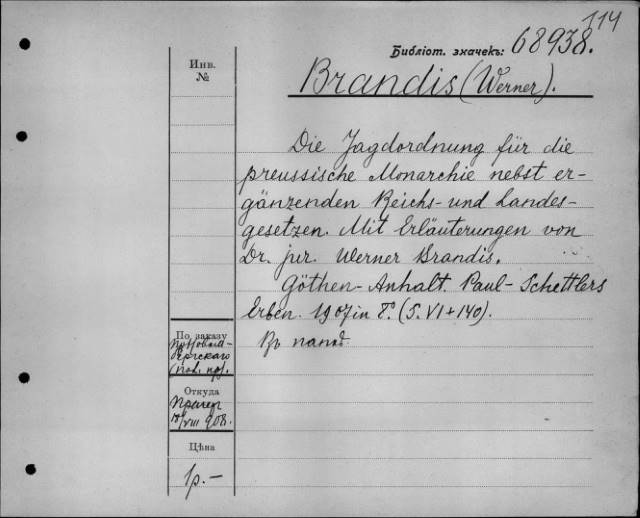 114
Библіот. значекъ: 68938.
Инв.
№
Brandis (Werner).
Die Jagdordnung für die
preussische Monarchie nebst er-
gänzenden Reichs- und Landes-
gesetzen. Mit Erläuterungen von
Dr. jur. Werner Brandis.
Göthen-Anhalt. Paul-Schettlers
Erben. 1907 in 8º. (S. VI+140).
По заказу
Откуда
18/VIII 908.
Цѣна
1р.—